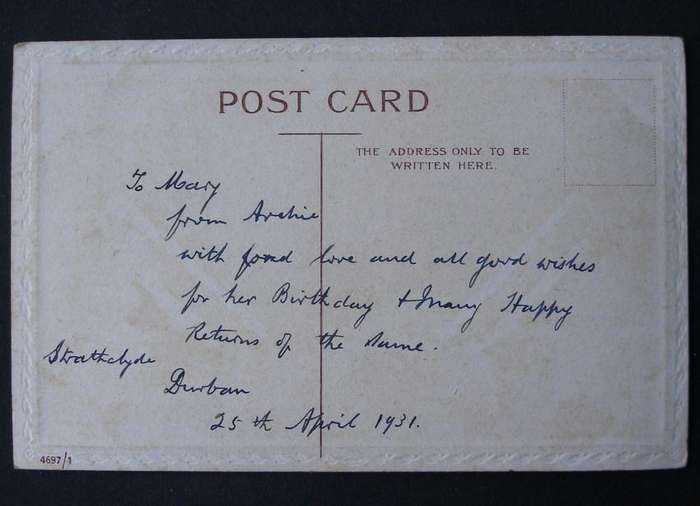 POST CARD
THE ADDRESS ONLY TO BE
WRITTEN HERE.
To Mary
from Archie
with fond love and all good wishes
for her Birthday & Many Happy
Returns of the Same.
Strathclyde
Durban
25th April 1931.
4697/1